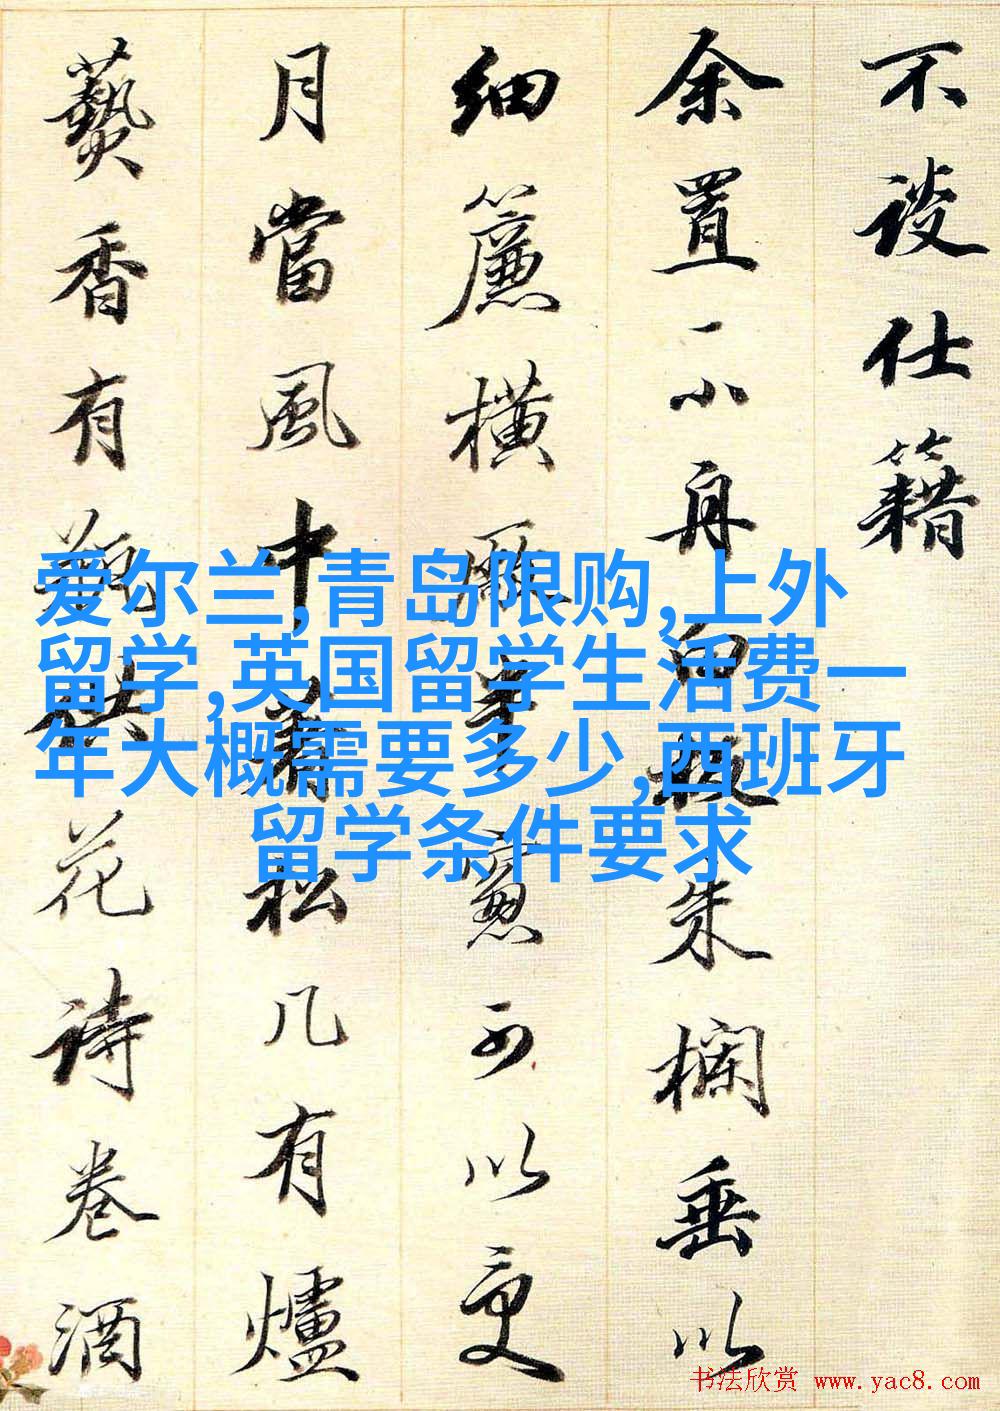 不談仕籍
余置一小舟白板朱欄垂以
細簾橫窻可以受
月當風中著松几有爐
爇香有瓶供花詩卷酒
爱尔兰,青岛限购,上外
留学,英国留学生活费一
年大概需要多少,西班牙
留学条件要求
书法欣赏 www.yac8.com